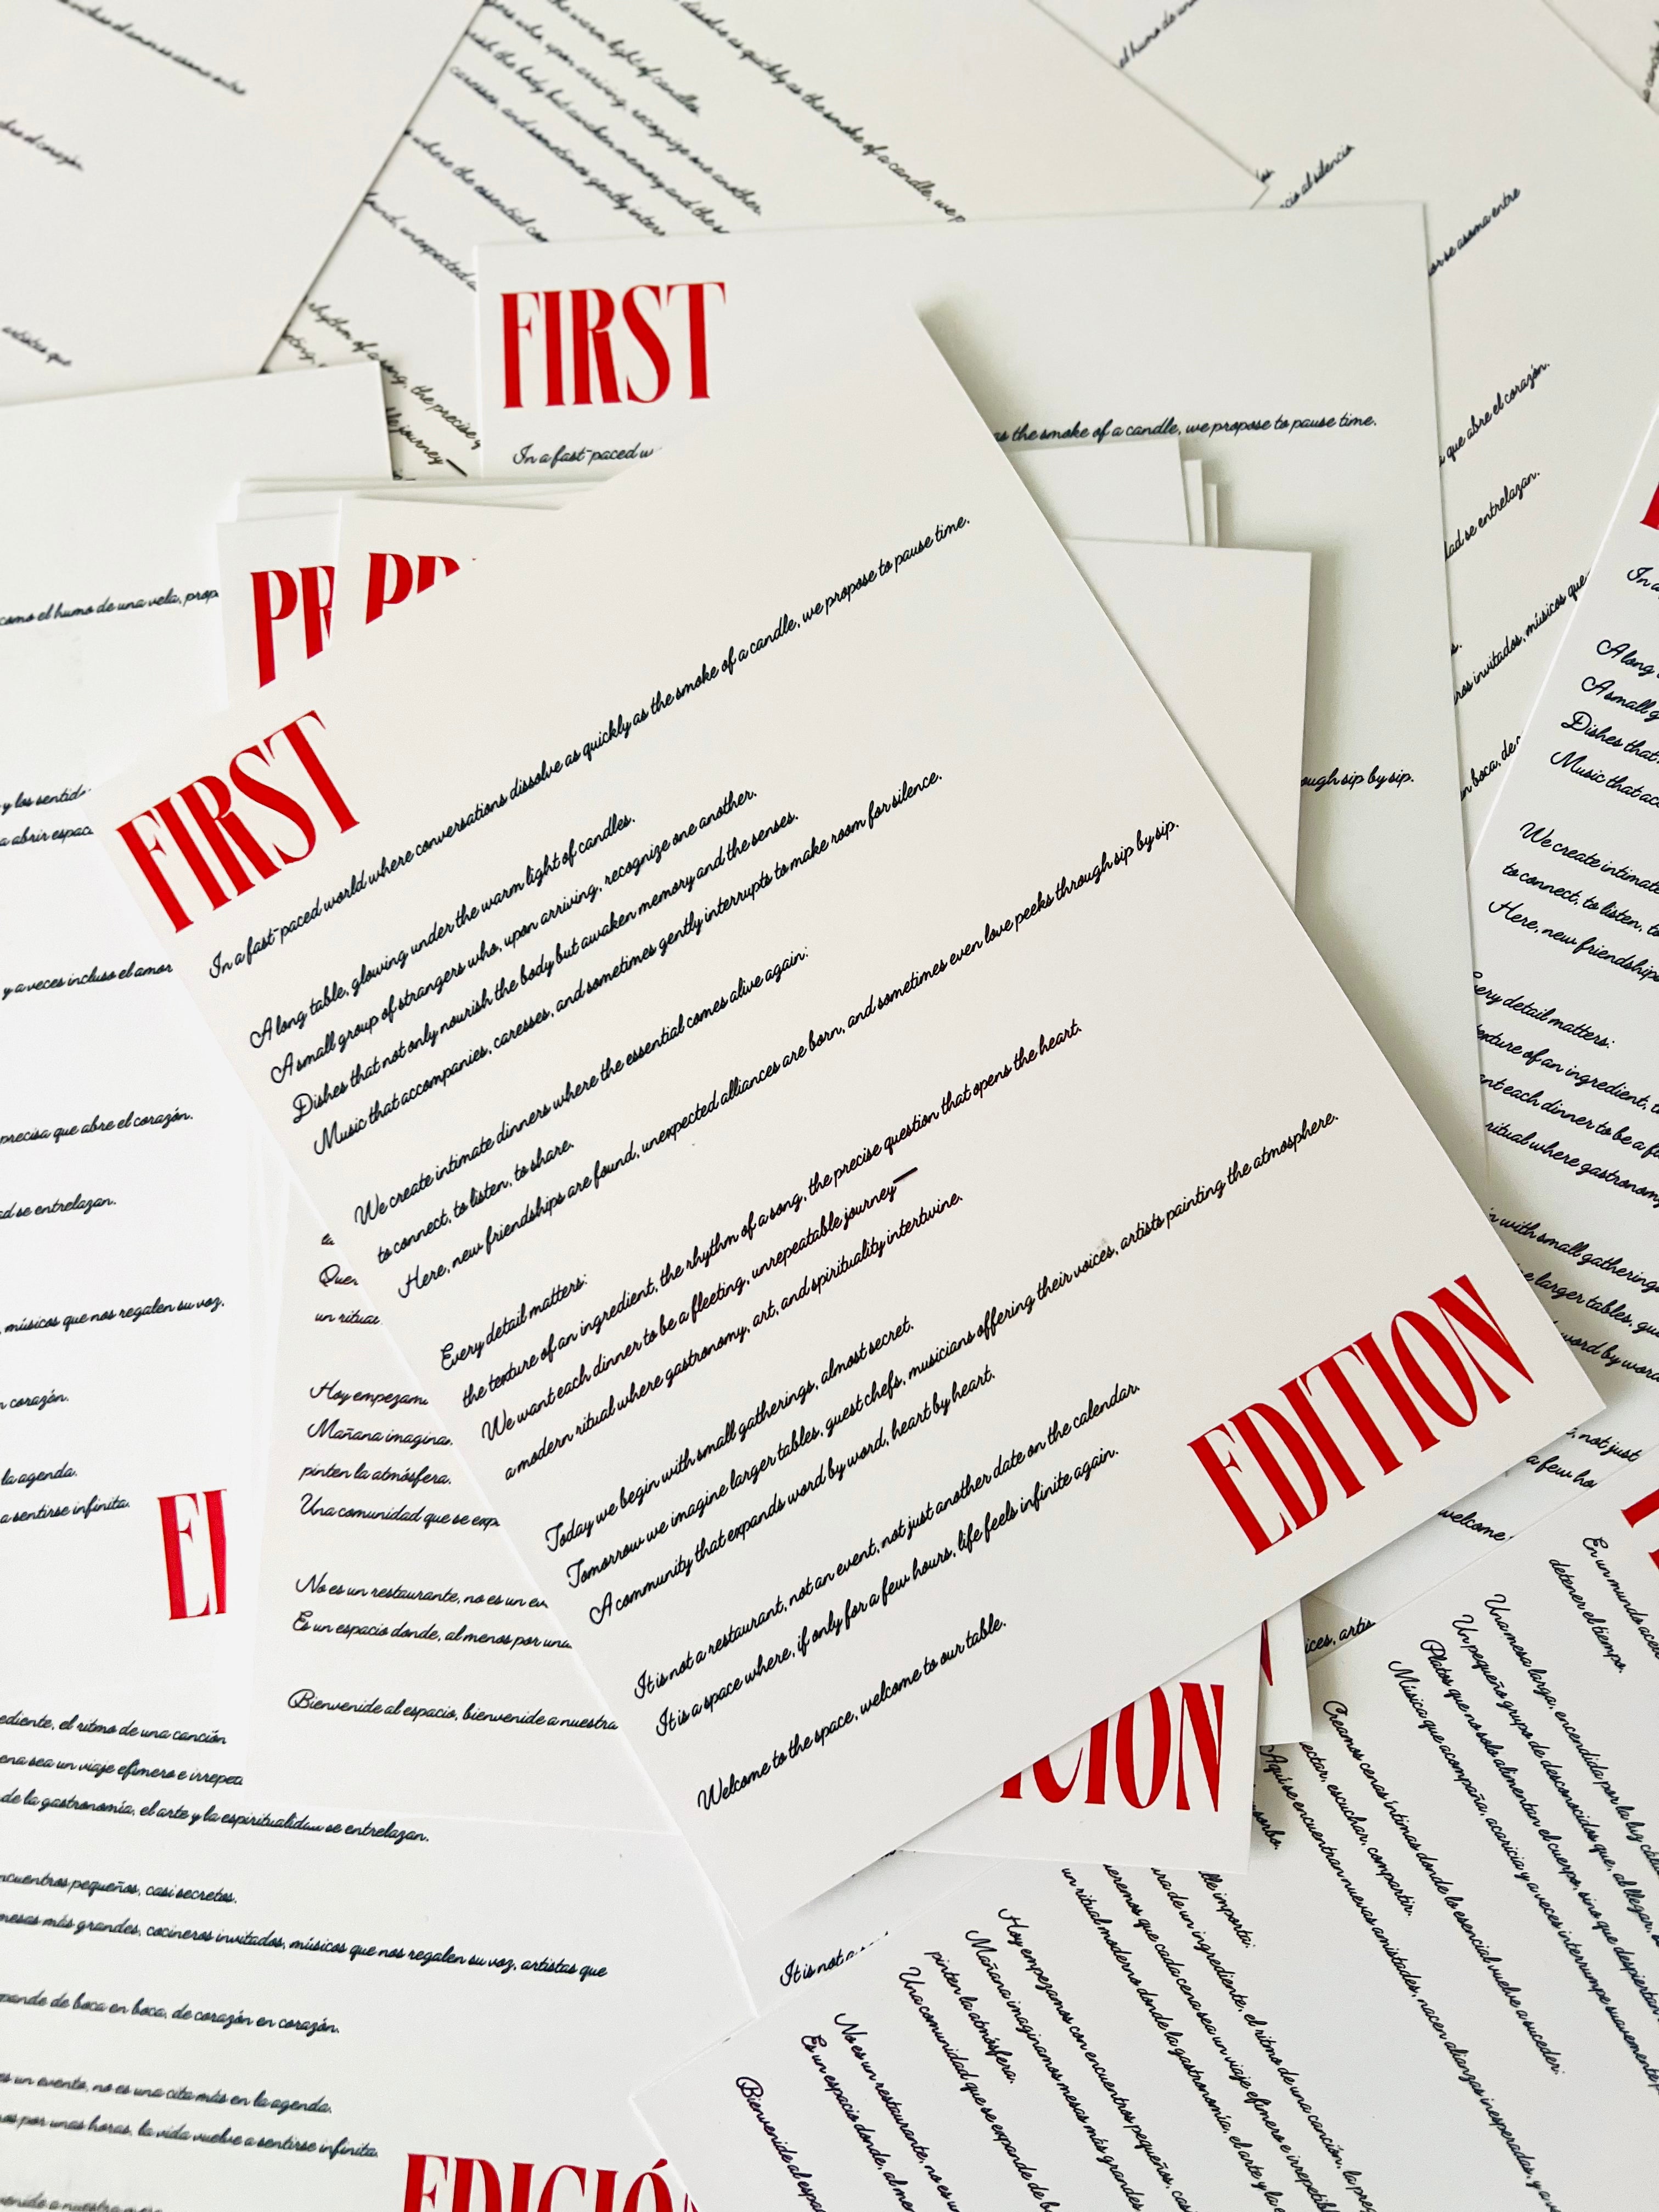 FIRST
In a fast-paced world where conversations dissolve as quickly as the smoke of a candle, we propose to pause time.
A long table, glowing under the warm light of candles.
A small group of strangers who, upon arriving, recognize one another.
Dishes that not only nourish the body but awaken memory and the senses.
Music that accompanies, caresses, and sometimes gently interrupts to make room for silence.
We create intimate dinners where the essential comes alive again:
to connect, to listen, to share.
Here, new friendships are found, unexpected alliances are born, and sometimes even love peeks through sip by sip.
Every detail matters:
the texture of an ingredient, the rhythm of a song, the precise question that opens the heart.
We want each dinner to be a fleeting, unrepeatable journey—
a modern ritual where gastronomy, art, and spirituality intertwine.
Today we begin with small gatherings, almost secret.
Tomorrow we imagine larger tables, guest chefs, musicians offering their voices, artists painting the atmosphere.
A community that expands word by word, heart by heart.
It is not a restaurant, not an event, not just another date on the calendar.
It is a space where, if only for a few hours, life feels infinite again.
Welcome to the space, welcome to our table.
EDITION
FIRST
In a fast-paced
as the smoke of a candle, we propose to pause time.
through sip by sip.
como el humo de una vela,
y los
a abrir
y a veces incluso el amor
precisa que abre el corazón.
se entrelazan.
músicos que nos regalen su voz,
corazón.
la agenda.
a sentirse infinita.
un
Hoy
Mañana
pinten la atmósfera.
Una comunidad que se
No es un restaurante, no es un
Es un espacio donde, al menos por
Bienvenide al espacio, bienvenide a nuestra
el ritmo de una canción
sea un viaje efímero e
de la gastronomía, el arte y la espiritualidad se entrelazan.
pequeños, casi secretos.
mesas más grandes, cocineros invitados, músicos que nos regalen su voz, artistas que
de boca en boca, de corazón en corazón.
un evento, no es una cita más en la agenda.
por unas horas, la vida vuelve a sentirse infinita.
EDICIÓN
It is not a
En un mundo
detener el tiempo.
Una mesa larga, encendida por la luz
Un pequeño grupo de desconocidos que, al llegar,
Platos que no solo alimentan el cuerpo, sino que despiertan
Música que acompaña, acaricia y a veces interrumpe suavemente
Creamos cenas íntimas donde lo esencial vuelve a suceder:
escuchar, compartir.
Aquí se encuentran nuevas amistades, nacen alianzas inesperadas, y a
importa:
de un ingrediente, el ritmo de una canción, la
que cada cena sea un viaje efímero e
un ritual moderno donde la gastronomía, el arte y la
Hoy empezamos con encuentros pequeños,
Mañana imaginamos mesas más grandes
pinten la atmósfera.
Una comunidad que se expande de
No es un restaurante, no es
Es un espacio donde, al
Bienvenide al
A long
A small
Dishes that
Music that
We create intimate
to connect, to listen,
Here, new friendships
detail matters:
of an ingredient,
each dinner to be a
ritual where
with small gatherings
larger tables,
word by
not just
a few
welcome